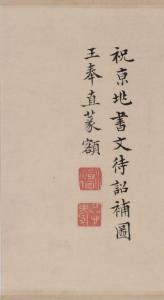 祝京兆書文待詔補圖
王奉直篆額